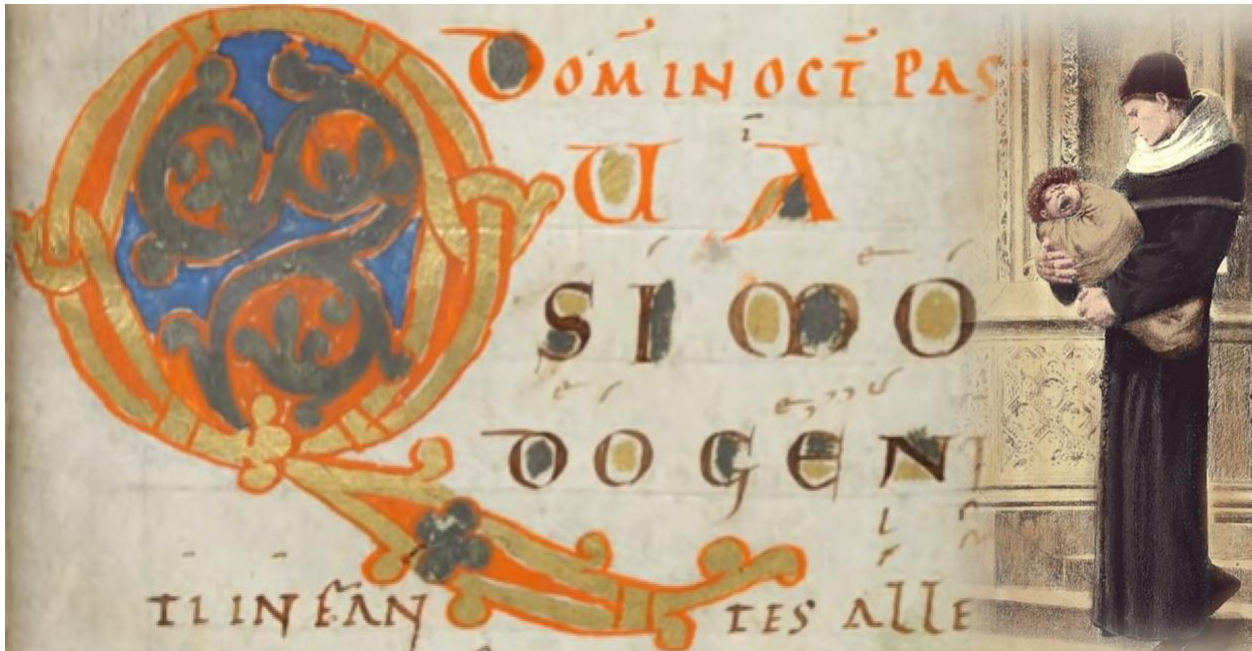 DOMIN OCT PAS
QUA
SIMO
DOGENI
TI INFAN TES ALLE